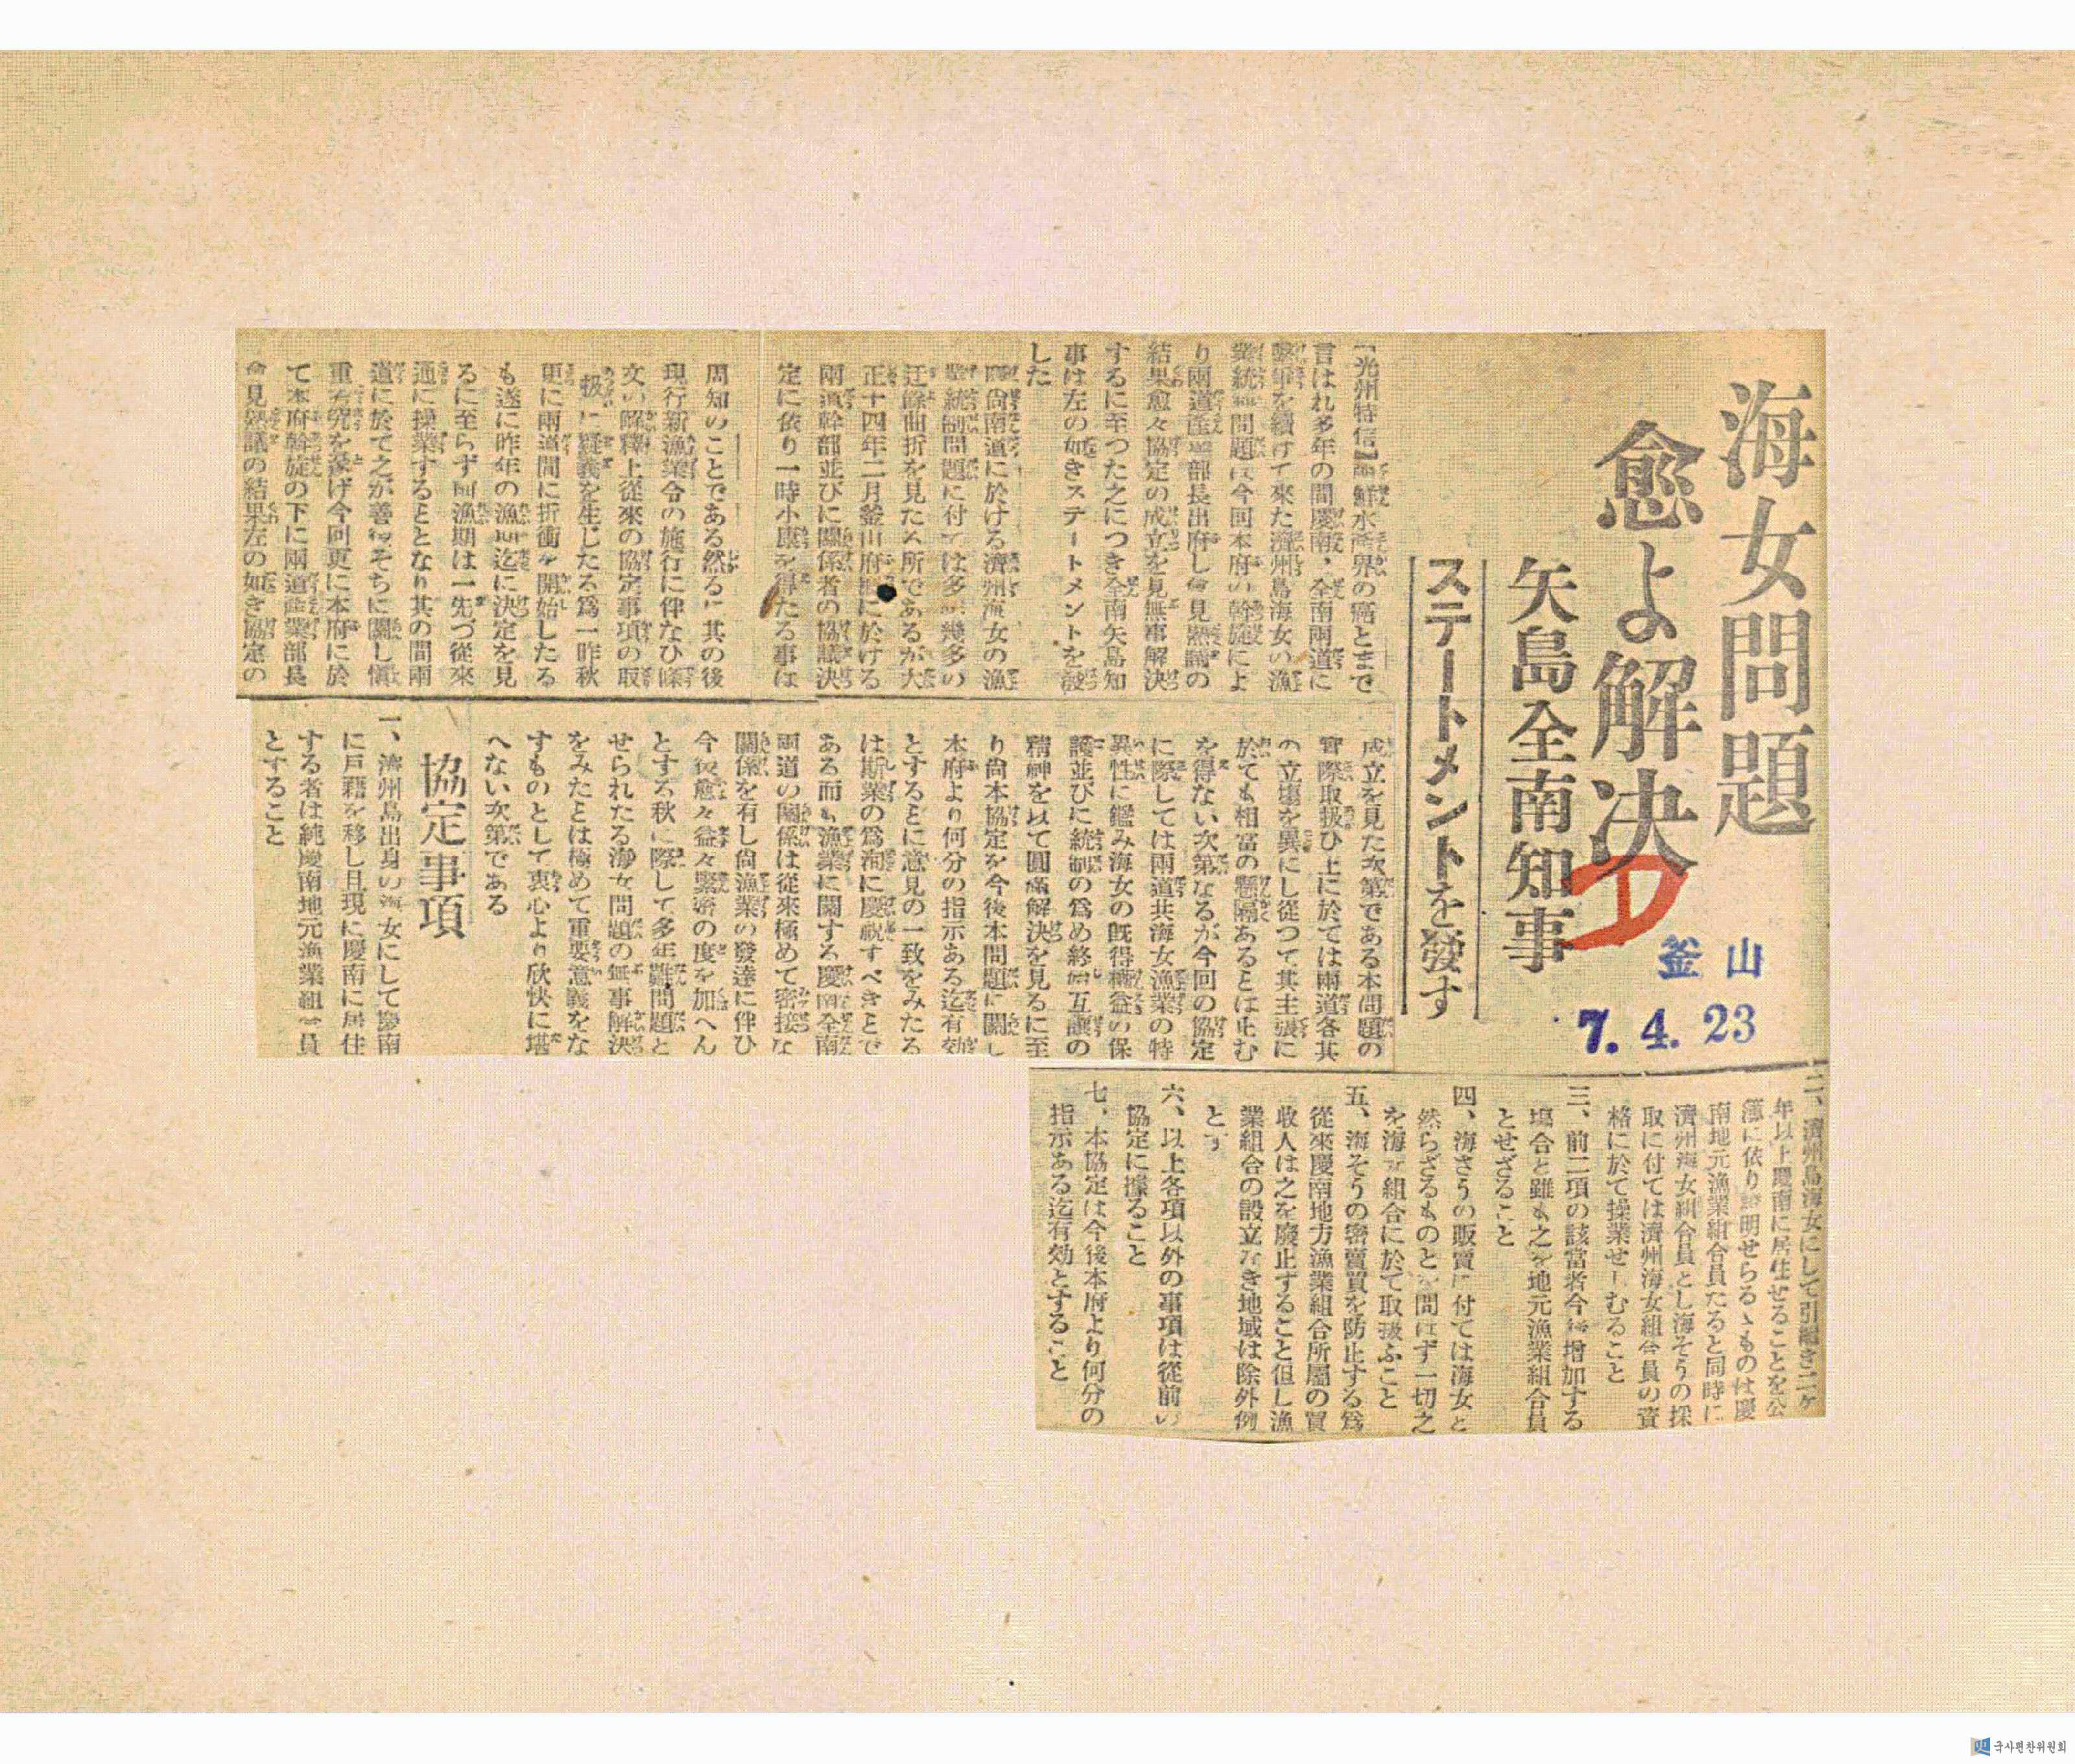 海女問題
愈よ解決
矢島全南知事
ステートメントを發す
釜山
7.4.23
【光州特信】南鮮水產界の癌とまで
言はれ多年の間慶南、全南兩道に
繫爭を續けて來た濟州島海女の漁
業統制問題は今回本府の斡旋によ
り兩道產業部長出府し會見熟議の
結果愈々協定の成立を見無事解決
するに至つた之につき全南矢島知
事は左の如きステートメントを發
した
慶尙南道に於ける濟州海女の漁
業統制問題に付ては多年幾多の
迂餘曲折を見たる所であるが大
正十四年二月釜山府廳に於ける
兩道幹部並びに關係者の協議決
定に依り一時小康を得たる事は
周知のことである然るに其の後
現行新漁業令の施行に伴なひ條
文の解釋上從來の協定事項の取
扱に疑義を生じたる爲一昨秋
更に兩道間に折衝を開始したる
も遂に昨年の漁期迄に決定を見
るに至らず同漁期は一先づ從來
通に操業することとなり其の間兩
道に於て之が善後そちに關し愼
重考究を遂げ今回更に本府に於
て本府斡旋の下に兩道產業部長
會見熟議の結果左の如き協定の
成立を見た次第である本問題の
實際取扱ひ上に於ては兩道各其
の立場を異にし從つて其主張に
於ても相當の懸隔あるとは止む
を得ない次第なるが今回の協定
に際しては兩道共海女漁業の特
異性に鑑み海女の旣得權益の保
護並びに統制の爲め終始互讓の
精神を以て圓滿解決を見るに至
り尙本協定を今後本問題に關し
本府より何分の指示ある迄有効
とするとに意見の一致をみたる
は斯業の爲洵に慶祝すべきとで
ある而も漁業に關する慶南全南
兩道の關係は從來極めて密接な
關係を有し尙漁業の發達に伴ひ
今後愈々益々緊密の度を加へん
とする秋に際して多年難問題と
せられたる海女問題の無事解決
をみたとは極めて重要意義をな
すものとして衷心より欣快に堪
へない次第である
協定事項
一、濟州島出身の海女にして慶南
に戶籍を移し且現に慶南に居住
する者は純慶南地元漁業組合員
とすること
二、濟州島海女にして引續き二ケ
年以上慶南に居住せることを公
簿に依り證明せらるゝものは慶
南地元漁業組合員たると同時に
濟州海女組合員とし海そうの採
取に付ては濟州海女組合員の資
格に於て操業せしむること
三、前二項の該當者今後增加する
場合と雖も之を地元漁業組合員
とせざること
四、海さうの販賣に付ては海女と
然らざるものとを問はず一切之
を海女組合に於て取扱ふこと
五、海そうの密賣買を防止する爲
從來慶南地方漁業組合所屬の買
收人は之を廢止すること但し漁
業組合の設立なき地域は除外例
とす
六、以上各項以外の事項は從前の
協定に據ること
七、本協定は今後本府より何分の
指示ある迄有効とすること
국사편찬위원회